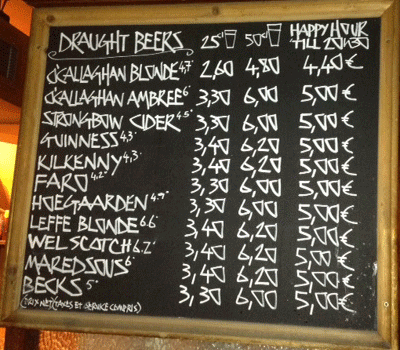 DRAUGHT BEERS 25cl 50cl HAPPY HOUR TILL 20H30
O'CALLAGHAN BLONDE 4,7° 2,60 4,80 4,40€
O'CALLAGHAN AMBREE 6° 3,30 6,00 5,00€
STRONGBOW CIDER 4.5° 3,30 6,00 5,00€
GUINNESS 4.3° 3,40 6,20 5,00€
KILKENNY 4,3° 3,40 6,20 5,00€
FARO 4.2° 3,30 6,00 5,00€
HOEGAARDEN 4.9° 3,30 6,00 5,00€
LEFFE BLONDE 6.6° 3,40 6,20 5,00€
WEL SCOTCH 6.2° 3,40 6,20 5,00€
MAREDSOUS 6° 3,40 6,20 5,00€
BECKS 5° 3,30 6,00 5,00€
(PRIX NET(TAXES ET SERVICE COMPRIS)